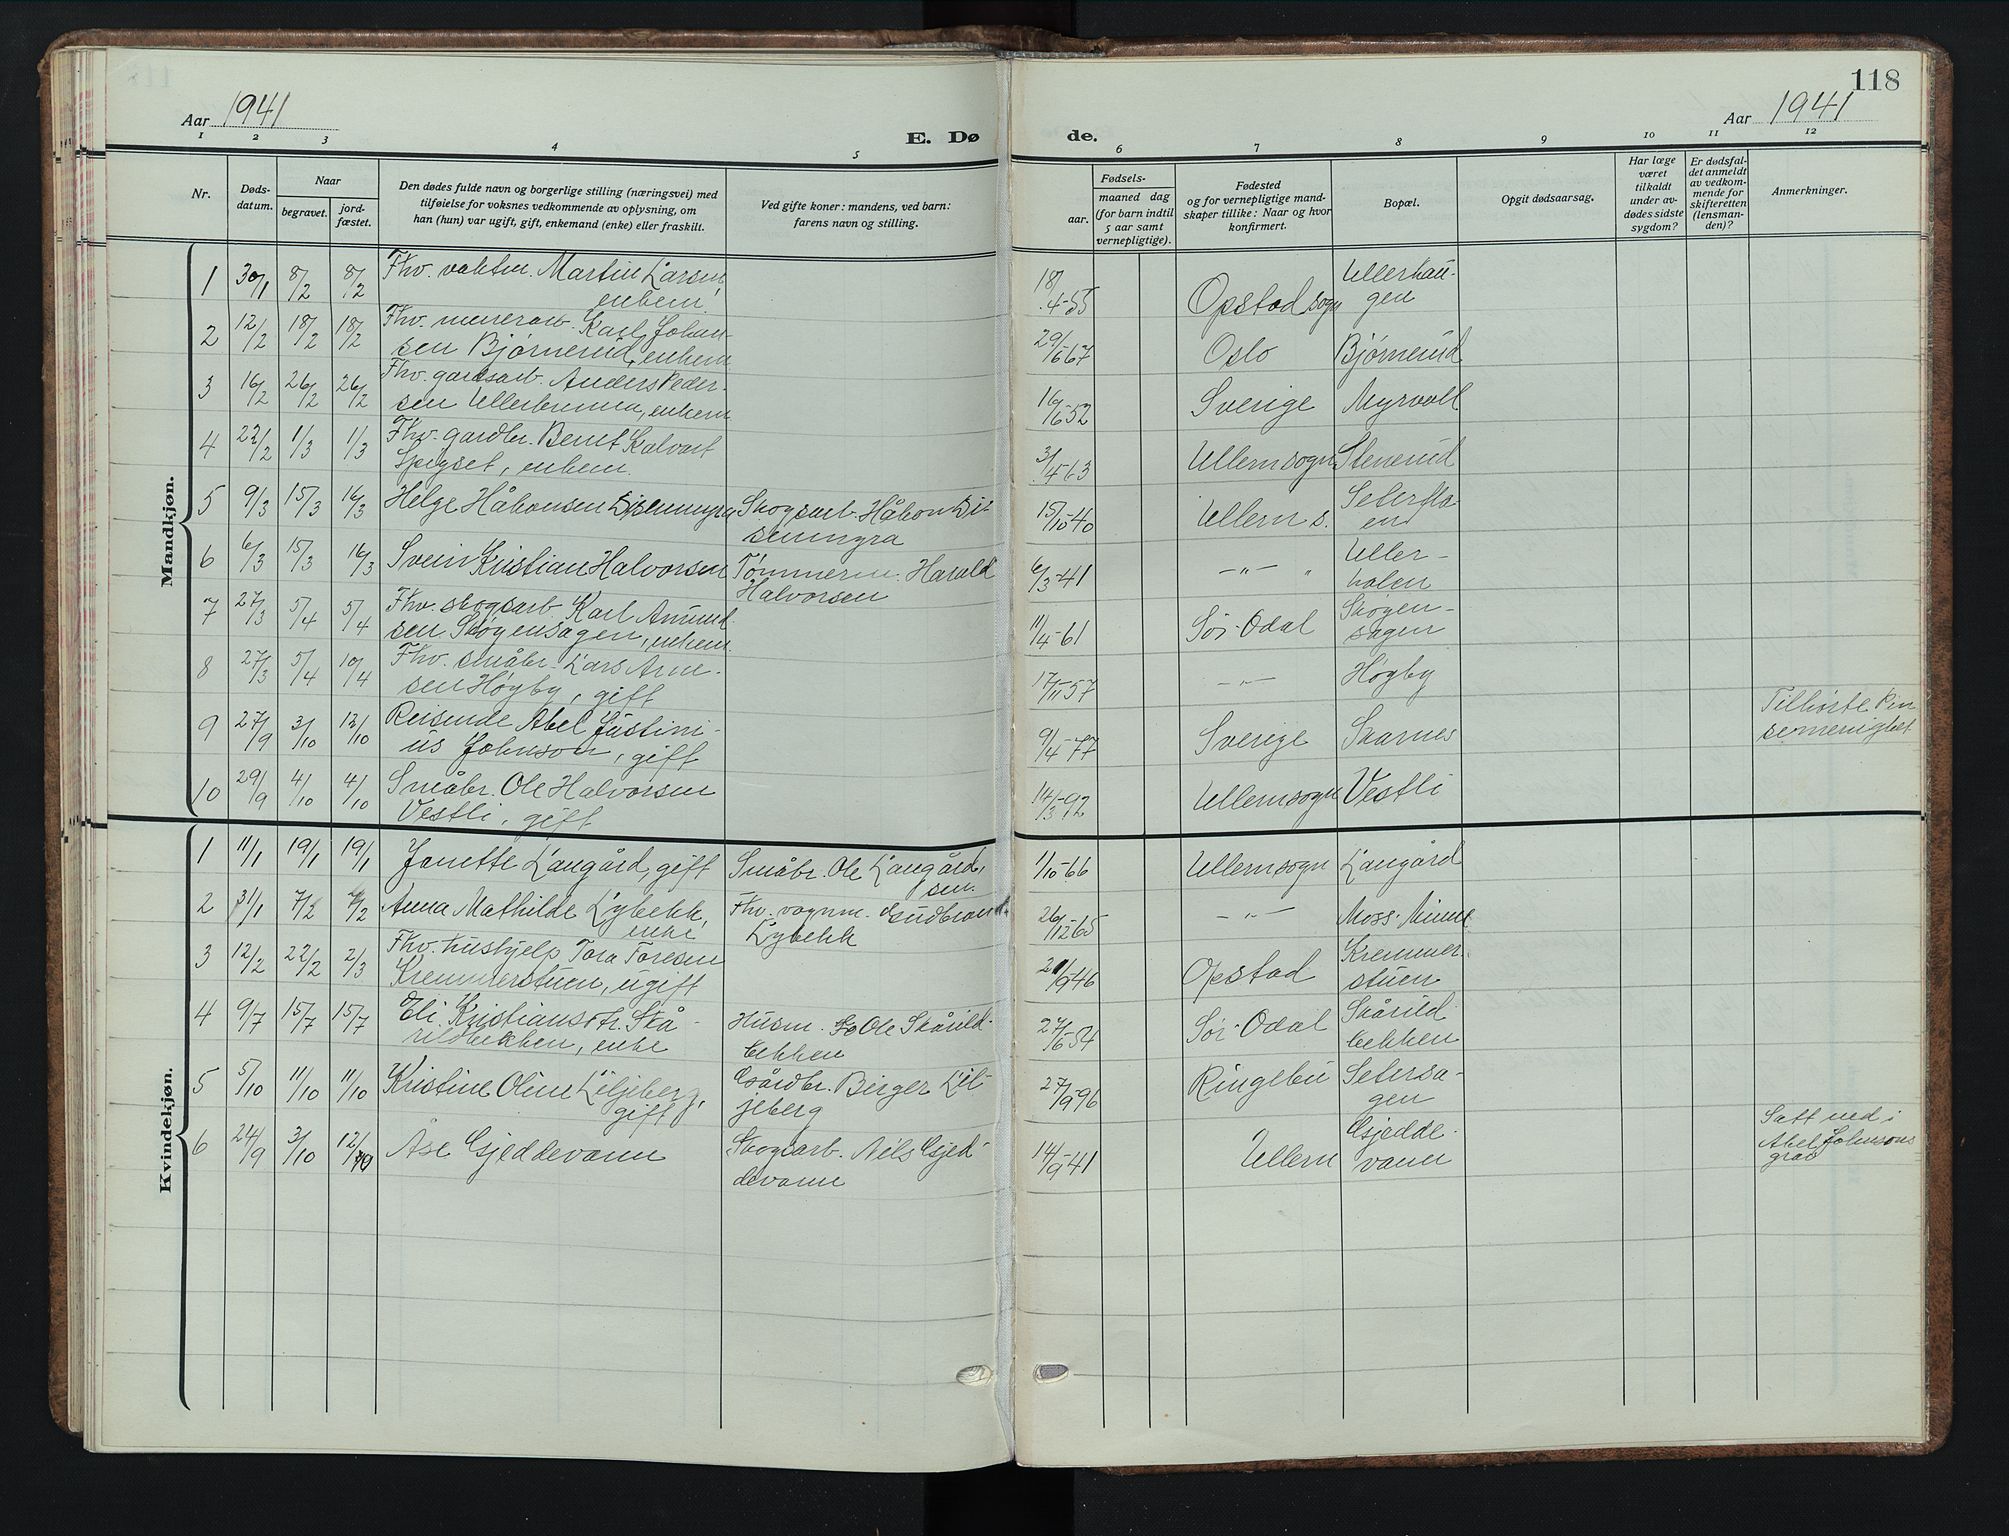 118
Aar 1941
E. Dø
de.
Aar 1941
1 2 3 4 5 6 7 8 9 10 11 12
Nr.
Døds-
datum.
Naar
begravet.
jord-
fæstet.
Den dødes fulde navn og borgerlige stilling (næringsvei) med
tilføielse for voksnes vedkommende av oplysning, om
han (hun) var ugift, gift, enkemand (enke) eller fraskilt.
Ved gifte koner: mandens, ved barn:
farens navn og stilling.
Fødsels-
aar.
maaned dag
(for barn indtil
5 aar samt
vernepligtige).
Fødested
og for vernepligtige mand-
skaper tillike: Naar og hvor
konfirmert.
Bopæl.
Opgit dødsaarsag.
Har læge
været
tilkaldt
under av-
dødes sidste
sygdom?
Er dødsfal-
det anmeldt
av vedkom-
mende for
skifteretten
(lensman-
den)?
Anmerkninger.
Mandkjøn.
1 30/1 8/2 8/2 Fhv. vaktm. Martin Larsen, 18/4-55 Opstad sogn Ullerhau-
enkem. gen
2 12/2 18/2 18/2 Fhv. murerarb. Karl Johan-
sen Bjørnerud, enkem 29/6-67 Oslo Bjørnerud
3 16/2 26/2 26/2 Fhv. gardsarb. Anders Peder-
sen Ullerbrenna, enkem 16/6-52 Sverige Myrvoll
4 22/2 1/3 1/3 Fhv. gardbr. Bernt Kalvart
Spigset, enkem. 3/4-63 Ullern sogn Stenerud
5 9/3 15/3 16/3 Helge Håkonsen Disenmyra Skogsarb. Håkon Di-
senmyra 15/10-40 Ullern s. Seterfla-
en
6 6/3 15/3 16/3 Svein Kristian Halvorsen Tømmerm. Harald
Halvorsen 6/3-41 -"- " Uller-
holen
7 27/3 5/4 5/4 Fhv. skogsarb. Karl Amund-
sen Skøgensagen, enkem. 11/4-61 Sør-Odal Skøgen-
sagen
8 27/3 5/4 10/4 Fhv. småbr. Lars Arne-
sen Høgby, gift 17/11-57 -"- Høgby
9 27/9 3/10 12/10 Reisende Abel Justini-
us Johnson, gift 9/4-77 Sverige Skarnes Tilhørte Pin
semenighet
10 29/9 4/10 4/10 Småbr. Ole Halvorsen
Vestli, gift 14/3-92 Ullern sogn Vestli
Kvindekjøn.
1 11/1 19/1 19/1 Janette Langård, gift Småbr. Ole Langård-
sen. 1/10-66 Ullern sogn Langård
2 31/1 7/2 /2 Anna Mathilde Lybekk, Fhv. vognm. Gudbrand
enke Lybekk 26/12-65 -"- Moss-Minne
3 12/2 22/2 2/3 Fhv. hushjelp Tora Toresen
Kremmerstuen, ugift 21/9-46 Opstad Kremmer-
stuen
4 9/7 15/7 15/7 Eli Kristiansdtr. Skå-
rildbekken, enke Husm. Ole Skårild-
bekken 27/6-54 Sør-Odal Skårild-
bekken
5 5/10 11/10 11/10 Kristine Oline Liljeberg, Gårdbr. Birger Lil-
gift jeberg 27/9-96 Ringebu Setersa-
gen
6 24/9 3/10 12/10 Åse Gjeddevann Skogsarb. Nils Gjed-
devann 14/9-41 Ullern Gjedde-
vann Satt ned i
Abel Johnsons
grav